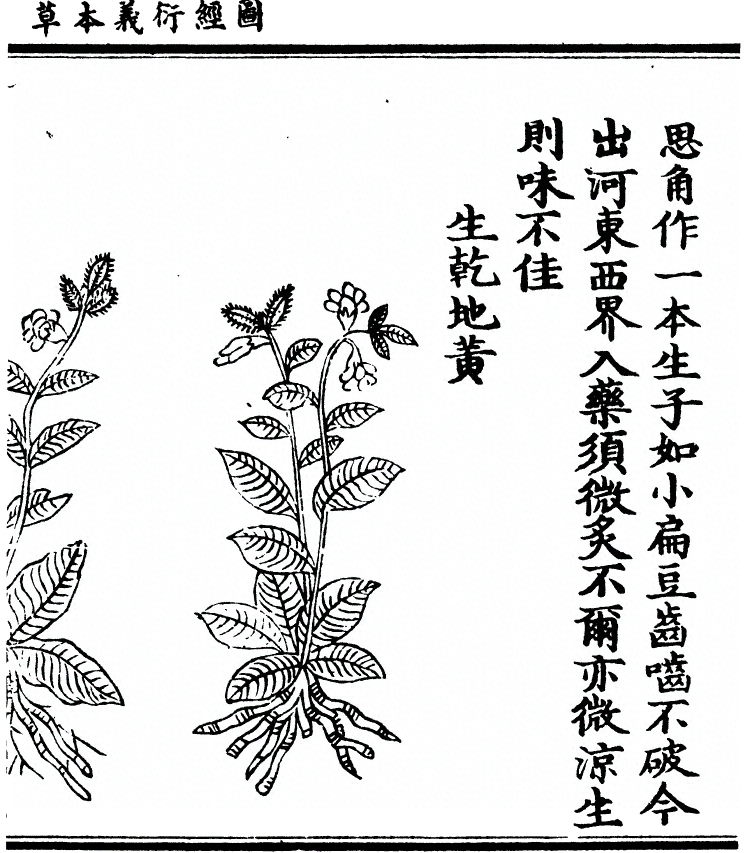 圖經衍義本草
思角作一本生子如小扁豆齒嚙不破今
出河東西界入藥須微炙不爾亦微涼生
則味不佳
生乾地黃